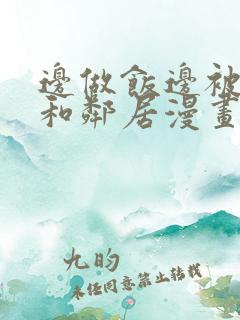 邊做飯邊被
和鄰居漫畫
九昀
未经同意禁止转载